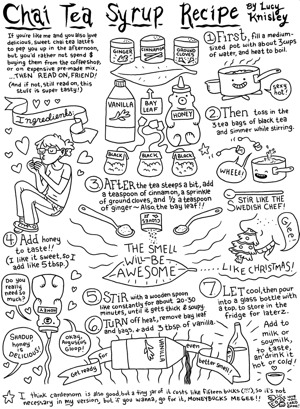 Chai Tea Syrup Recipe By Lucy Knisley
If you're like me and you also love
delicious, sweet chai tea lattes
to pep you up in the afternoon,
but you'd rather not spend $
buying them from the coffeeshop,
or on expensive pre-made mix,
...THEN READ ON, FRIEND!
(And if not, still read on, this
stuff is super tasty!)
GINGER
CINNAMON
GROUND CLOVES
VANILLA
BAY LEAF
HONEY
BLACK
BLACK
BLACK
Ingredients
① First, fill a medium-
sized pot with about 5 cups
of water, and heat to boil.
② Then toss in the
3 tea bags of black tea
and simmer while stirring.
WHEEE!
③ AFTER the tea steeps a bit, add
a teaspoon of cinnamon, a sprinkle
of ground cloves, and ½ a teaspoon
of ginger ~ Also the bay leaf!!
STIR LIKE THE
SWEDISH CHEF!
④ Add honey
to taste!!
(I like it sweet, so I
add like 5 tbsp.)
THE SMELL
WILL BE
AWESOME
.....LIKE CHRISTMAS!
Great!
Do you
really
need so
much?
SHADUP
HONEY
DELICIOUS!
⑤ STIR with a wooden spoon
like constantly for about 20-30
minutes, until it gets thick & soupy.
⑥ TURN off heat, remove bay leaf
and bags, & add 3 tbsp. of vanilla.
Get ready
for
even
better smell!
VANILLA
⑦ LET cool, then pour
into a glass bottle with
a top, to store in the
fridge for laterz.
Add to
milk or
soymilk,
to taste,
an' drink it
hot or cold!
I think cardemom is also good, but a tiny jar of it costs like fifteen bucks (!!!), so it's not
necessary in my version, but if you wanna, go for it, MONEYBUCKS MEGEE!!